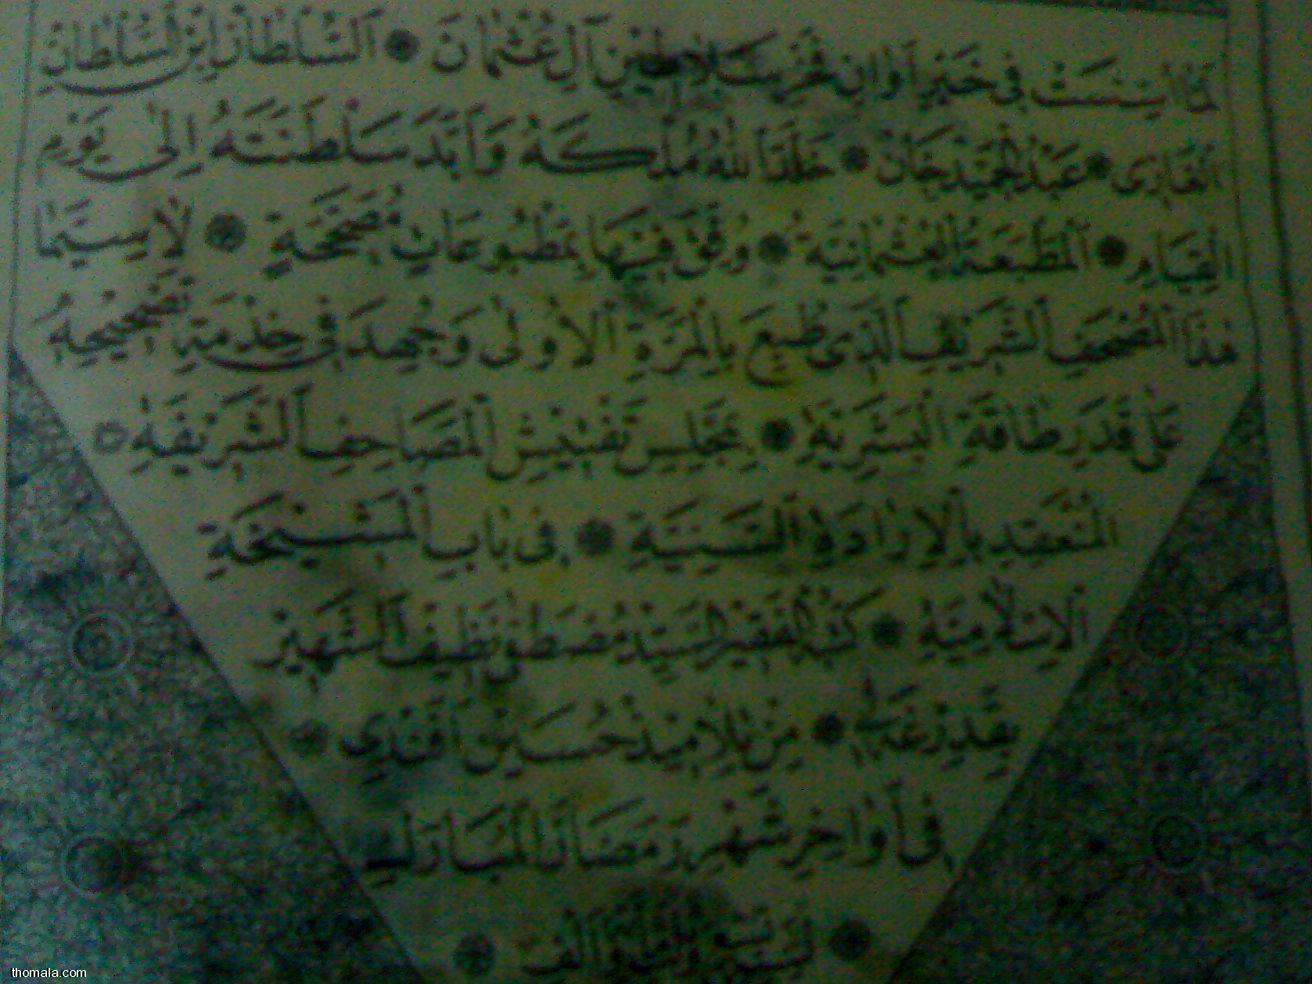 لَمَّا اُسِّسَتْ فِى خَيْرِ اَوَانِ فَخْرِ سَلَاطِينِ اٰلِ عُثْمَانَ ۞ اَلسُّلْطَانُ ابْنُ السُّلْطَانِ
الْغَازِى ۞ عَبْدُ الْحَمِيدْ خَانْ ۞ خَلَّدَ اللّٰهُ مُلْكَهُ وَاَبَّدَ سَلْطَنَتَهُ اِلٰى يَوْمِ
الْقِيَامِ ۞ اَلْمَطْبَعَةُ الْعُثْمَانِيَّةُ ۞ وُفِّقَ فِيهَا بِمَطْبُوعَاتٍ مُصَحَّحَةٍ ۞ لَاسِيَّمَا
هٰذَا الْمُصْحَفِ الشَّرِيفِ الَّذِى طُبِعَ بِالْمَرَّةِ الْاُولٰى وَجُهِدَ فِى خِذْمَةِ تَصْحِيحِهِ
عَلٰى قَدَرِ طَاقَةِ الْبَشَرِيَّةِ ۞ بِمَجْلِسِ تَفْتِيشِ الْمَصَاحِفِ الشَّرِيفَةِ
الْمُنْعَقِدِ بِالْاِرَادَةِ السَّنِيَّةِ ۞ فِى بَابِ الْمَشْيَخَةِ
الْاِسْلَامِيَّةِ ۞ كَتَبَهُ الْفَقِيرُ السَّيِّدْ مُصْطَفٰى نَظِيفْ الشَّهِيرْ
بِقَدِرْغَهْ لِى ۞ مِنْ تَلَامِيذْ حُسَيْنْ اَفَنْدِى ۞
فِى اَوَاخِرِ شَهْرِ رَمَضَانَ الْمُبَارَكِ
۞ وَاَلْفْ ۞
thomala.com